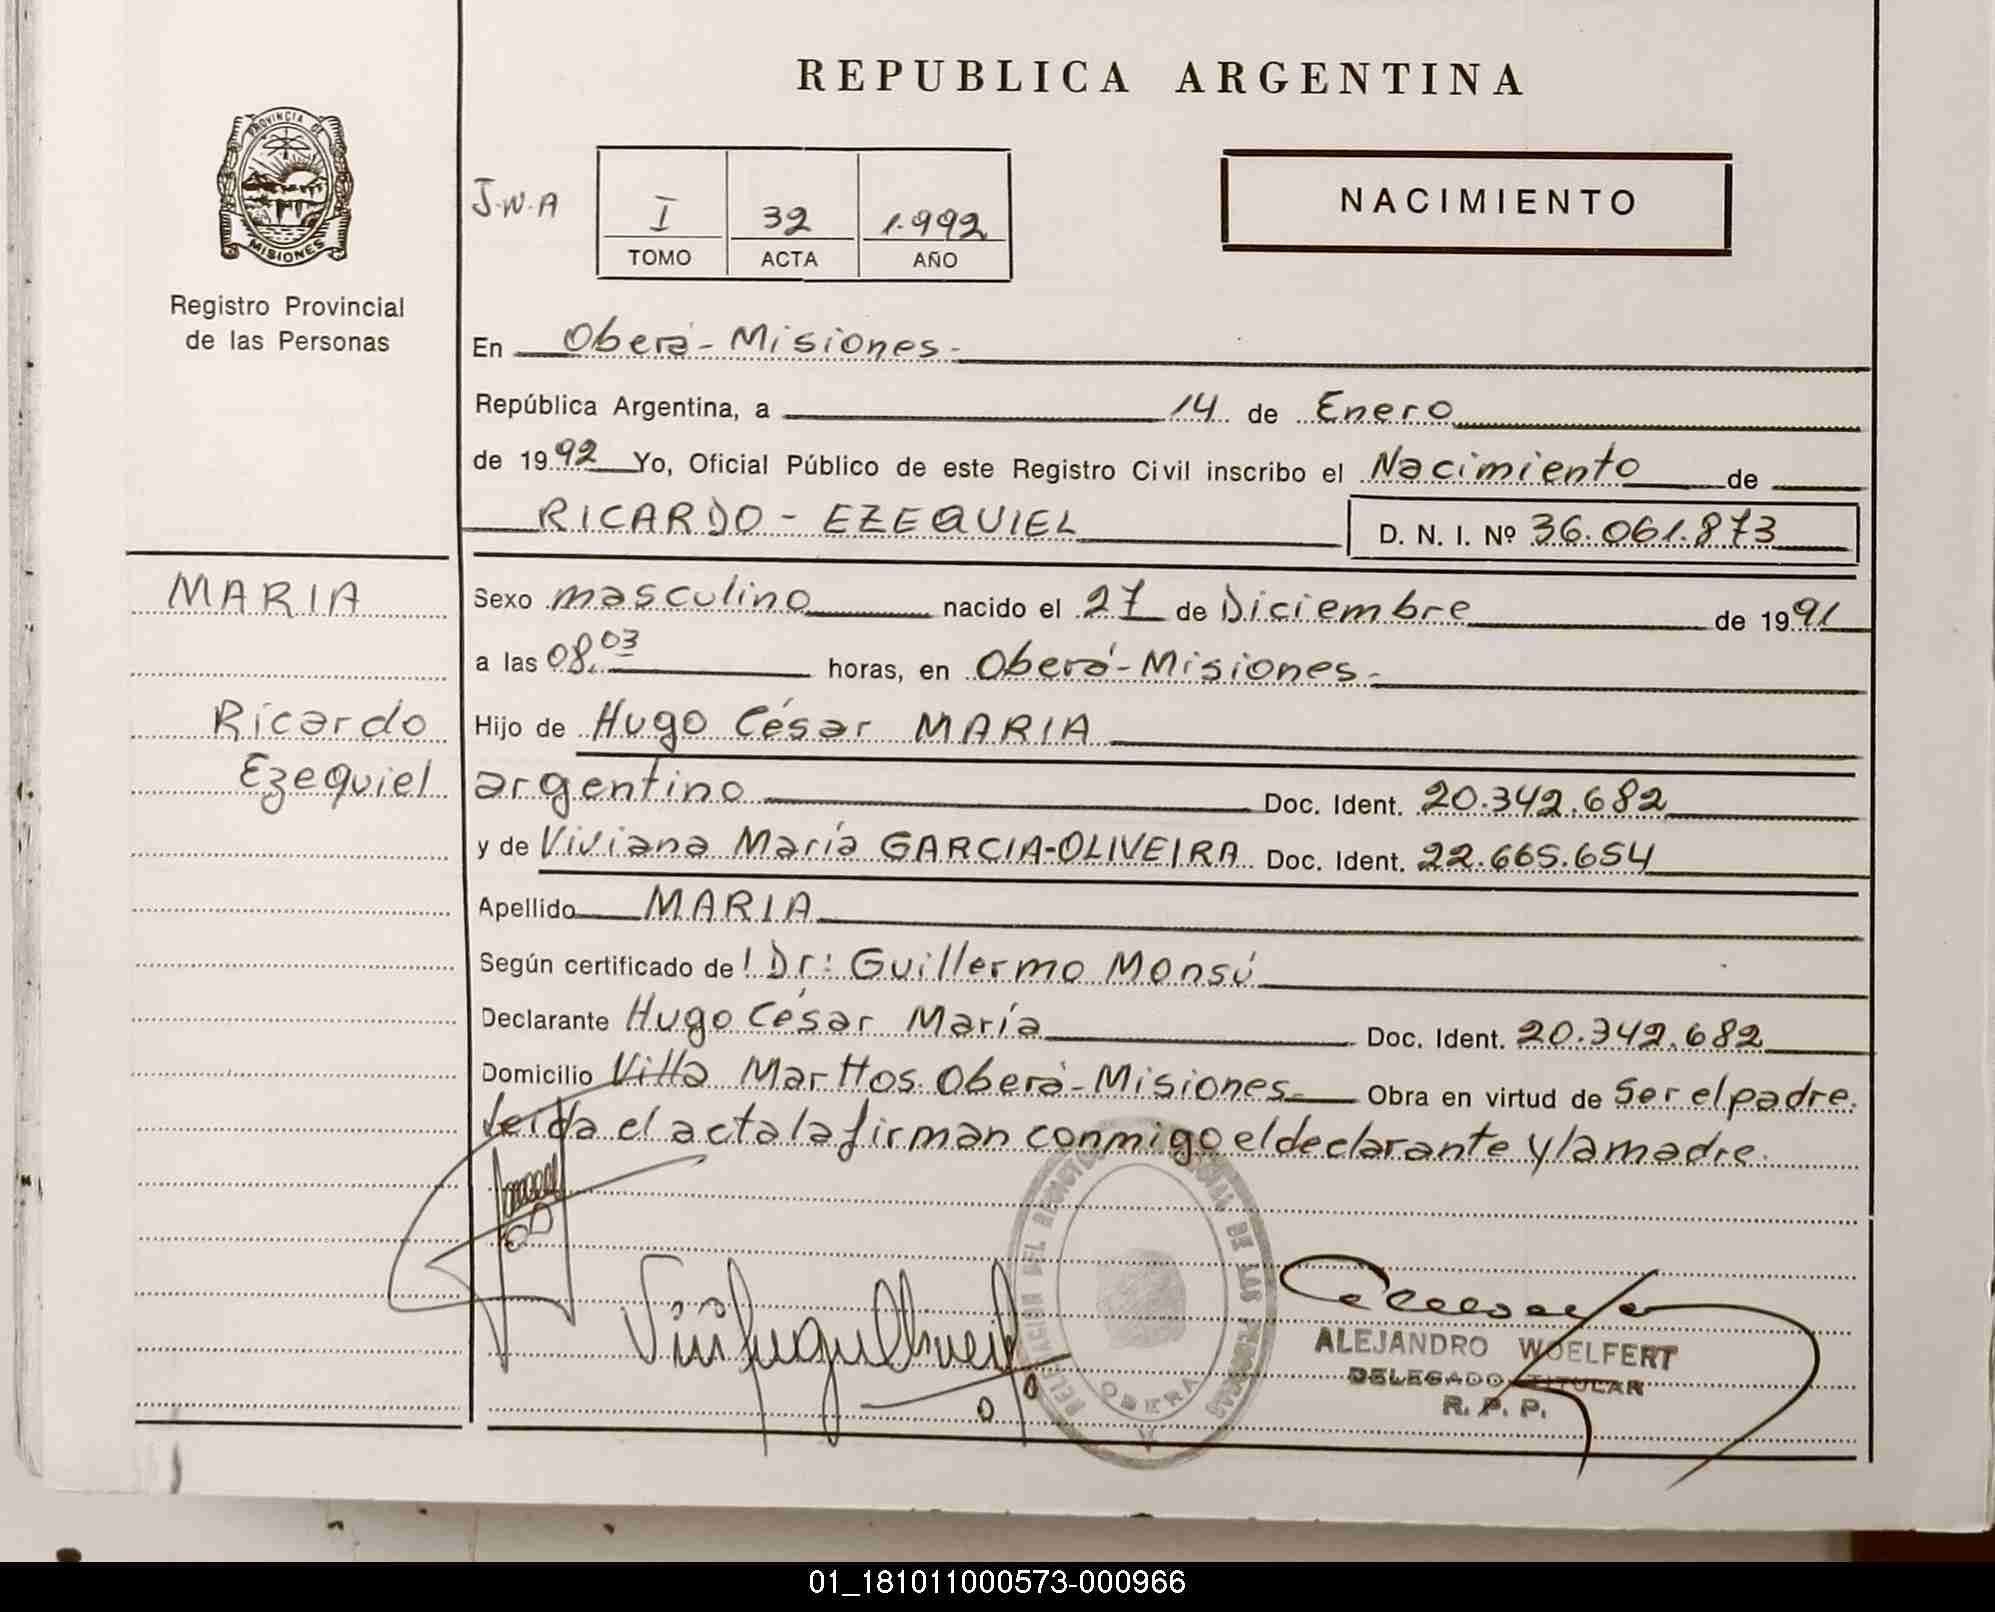 REPUBLICA ARGENTINA
PROVINCIA DE
MISIONES
Registro Provincial
de las Personas
J.W.A
I 32 1.992
TOMO ACTA AÑO
NACIMIENTO
En Oberá - Misiones -
República Argentina, a 14 de Enero
de 1992 Yo, Oficial Público de este Registro Civil inscribo el Nacimiento de
RICARDO - EZEQUIEL D. N. I. Nº 36.061.873
MARIA
Ricardo
Ezequiel
Sexo masculino nacido el 27 de Diciembre de 1991
a las 08.03 horas, en Oberá - Misiones -
Hijo de Hugo César MARIA
argentino Doc. Ident. 20.342.682
y de Viviana María GARCIA-OLIVEIRA Doc. Ident. 22.665.654
Apellido MARIA
Según certificado de l Dr: Guillermo Monsú
Declarante Hugo César María Doc. Ident. 20.342.682
Domicilio Villa Marttos. Oberá - Misiones Obra en virtud de Ser el padre.
leida el acta la firman conmigo el declarante y la madre.
DE LAS PERSONAS
OBERA
ALEJANDRO WOELFERT
DELEGADO TITULAR
R. P. P.
01_181011000573-000966